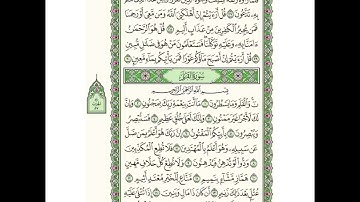 بِهِۦ تَدَّعُونَ ۝ قُلْ أَرَءَيْتُمْ إِنْ أَهْلَكَنِيَ ٱللَّهُ وَمَن مَّعِيَ أَوْ رَحِمَنَا
فَمَن يُجِيرُ ٱلْكَٰفِرِينَ مِنْ عَذَابٍ أَلِيمٍ ۝ قُلْ هُوَ ٱلرَّحْمَٰنُ
ءَامَنَّا بِهِۦ وَعَلَيْهِ تَوَكَّلْنَا فَسَتَعْلَمُونَ مَنْ هُوَ فِى ضَلَٰلٍ مُّبِينٍ
۝ قُلْ أَرَءَيْتُمْ إِنْ أَصْبَحَ مَآؤُكُمْ غَوْرًا فَمَن يَأْتِيكُم بِمَآءٍ مَّعِينٍۭ ۝
سُورَةُ القَلَمِ
بِسْمِ ٱللَّهِ ٱلرَّحْمَٰنِ ٱلرَّحِيمِ
نٓ وَٱلْقَلَمِ وَمَا يَسْطُرُونَ ۝ مَآ أَنتَ بِنِعْمَةِ رَبِّكَ بِمَجْنُونٍ ۝ وَإِنَّ
لَكَ لَأَجْرًا غَيْرَ مَمْنُونٍ ۝ وَإِنَّكَ لَعَلَىٰ خُلُقٍ عَظِيمٍ ۝ فَسَتُبْصِرُ
وَيُبْصِرُونَ ۝ بِأَييِّكُمُ ٱلْمَفْتُونُ ۝ إِنَّ رَبَّكَ هُوَ أَعْلَمُ بِمَن ضَلَّ
عَن سَبِيلِهِۦ وَهُوَ أَعْلَمُ بِٱلْمُهْتَدِينَ ۝ فَلَا تُطِعِ ٱلْمُكَذِّبِينَ
۝ وَدُّوا۟ لَوْ تُدْهِنُ فَيُدْهِنُونَ ۝ وَلَا تُطِعْ كُلَّ حَلَّافٍ مَّهِينٍ
۝ هَمَّازٍ مَّشَّآءٍۭ بِنَمِيمٍ ۝ مَّنَّاعٍ لِّلْخَيْرِ مُعْتَدٍ أَثِيمٍ ۝
عُتُلٍّۭ بَعْدَ ذَٰلِكَ زَنِيمٍ ۝ أَن كَانَ ذَا مَالٍ وَبَنِينَ ۝ إِذَا تُتْلَىٰ عَلَيْهِ